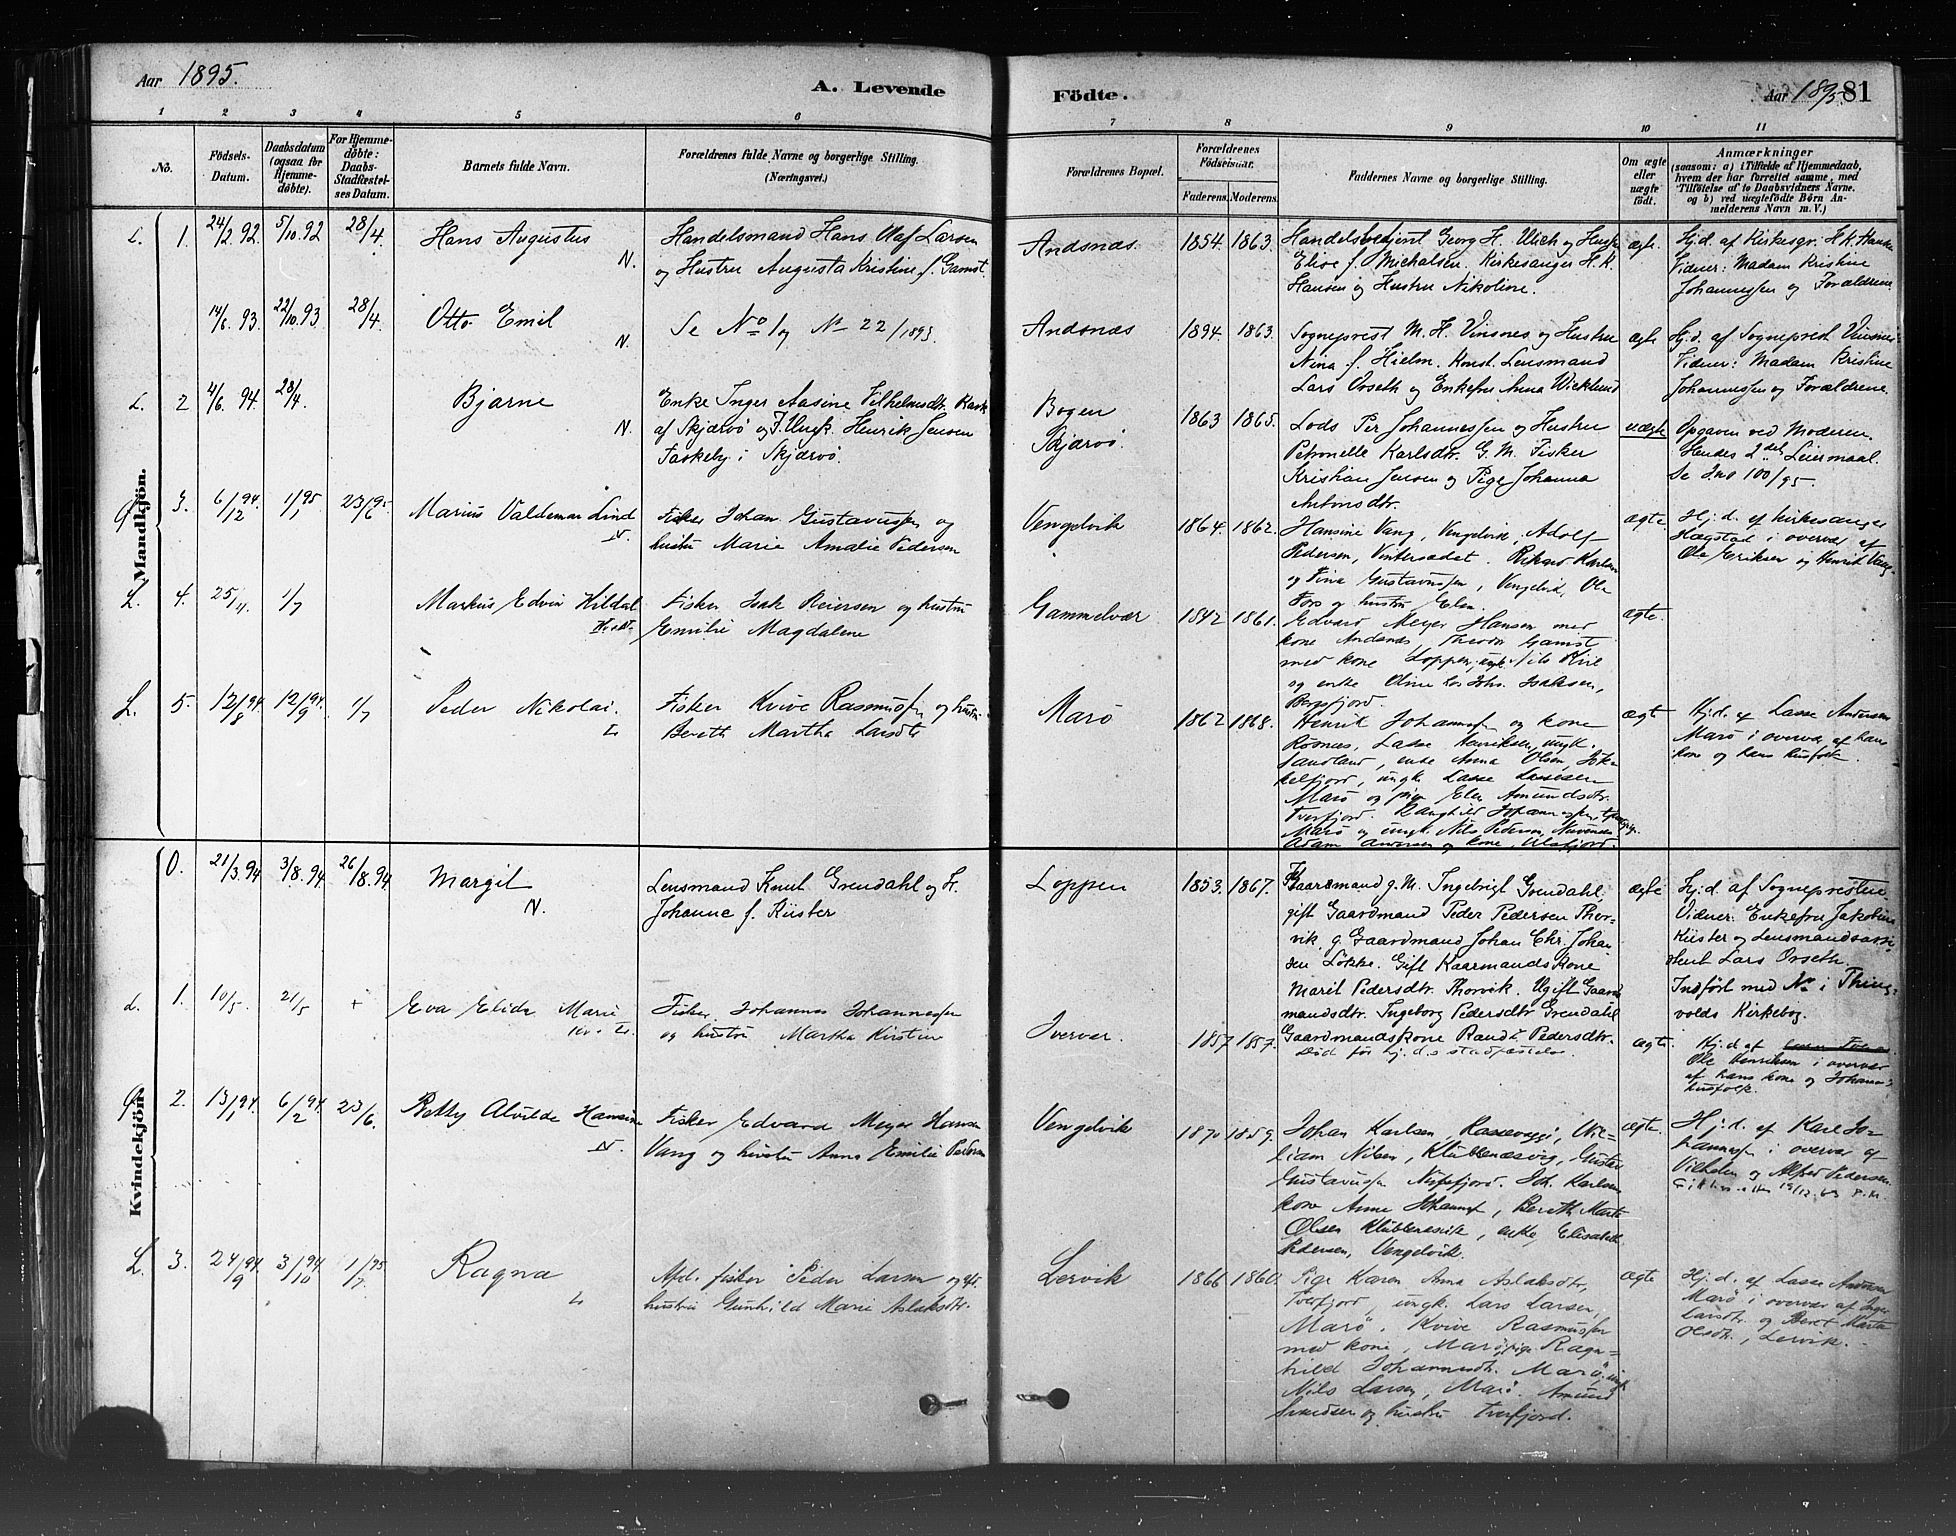 Aar 1895.
A. Levende
Födte.
Aar 1895. 81
1 2 3 4 5 6 7 8 9 10 11
No.
Födsels-
Datum.
Daabsdatum
(ogsaa for
Hjemme-
döbte).
For Hjemme-
döbte:
Daabs-
Stadfæstel-
ses Datum.
Barnets fulde Navn.
Forældrenes fulde Navne og borgerlige Stilling.
(Næringsvei.)
Forældrenes Bopæl.
Forældrenes
Födselsaar.
Faderens. Moderens.
Faddernes Navne og borgerlige Stilling.
Om ægte
eller
uægte
födt.
Anmærkninger
(saasom: a) i Tilfælde af Hjemmedaab,
hvem der har forrettet samme, med
Tilföielse af to Daabsvidners Navne.
og b) ved uægtefödte Börn An-
melderens Navn m. V.)
Mandkjön.
L. 1. 24/2 92. 5/10 92 28/4. Hans Augustus N.
Handelsmand Hans Olaf Larsen
og Hustru Augusta Kristine f. Gamst.
Andsnæs. 1854. 1863.
Handelsbetjent Georg H. Ulich og Hustru
Elise f. Michalsen. Kirkesanger H. K.
Hansen og Hustru Nikoline.
ægte.
Hj.d. af Kirkesgr. H. K. Hansen
Vidner: Madam Kristine
Johannessen og Forældrene.
14/6. 93. 22/10. 93 28/4. Otto Emil N.
Se No 1 og No 22/1893.
Andsnæs 1894. 1863.
Sogneprest M. H. Vinsnes og Hustru
Nina f. Hielm. Konst. Lensmand
Lars Orseth og Enkefru Anna Wicklund
ægte
Hj.d. af Sogneprest Vinsnes
Vidner: Madam Kristine
Johannessen og Forældrene.
L. 2 4/6. 94. 28/4. Bjarne N.
Enke Inger Aasine Vilhelmsdtr.
af Skjærvö og F. Ungk. Henrik Jensen
i Skjærvö.
Bogen
Skjærvö. 1863 1865.
Lods Per Johannessen og Hustru
Petronelle Karlsdtr. G. M. Fisker
Kristian Jensen og Pige Johanna
Antonsdtr.
uægte
Opgaven ved Moderen.
Hendes 2det Leiermaal.
Se 100/95.
3. 6/12 94. 1/1 95 23/6 95. Marius Valdemar Lind N.
Fisker Johan Gustavussen og
hustru Marie Amalie Pedersen
Vengelvik 1864. 1862.
Hansine Vang, Vengelvik, Adolf
Pedersen, Vintersædet. Rikard Karlsen
og Tina Gustavussen, Vengelvik, Ole
Fors og hustru Elen.
ægte.
Hj.d. af kirkesanger
Hægstad i overvær af
Ole Eriksen og Henrik Vang.
L. 4. 25/4. 1/7 Markus Edvin Kildal
Fisker Isak Reiersen og hustru
Emilie Magdalene
Gammelvær 1842 1861.
Edvard Meyer Hansen med
kone Andsnæs Theodor Gamst
med kone Loppen, ungk. Nils Kive
og enke Oline Isaksen,
Bergsfjord.
ægte.
L. 5. 12/8 94. 12/9 94. 1/7 Peder Nikolai. L
Fisker Kvive Rasmussen og hustru
Bereth Martha Larsdtr
Marö 1862 1868.
Henrik Johannessen og kone
Rosnes, Lasse Henriksen, ungk.
Sandland, enke Anna Olsen, Jök-
kelfjord, ungk. Lasse Larssen
Marö og pige Elen Amundsdtr.
Tverfjord. Ranghild Johannessen,
Marö og ungk. Nils Pedersen,
Adam Andersen og kone, Ulsfjord.
ægt
Hj.d. af Lasse Andersen
Marö i overvær af hans
kone og hans husfolk.
Kvindekjön.
0. 21/3. 94 3/8. 94. 26/8. 94. Margit N.
Lensmand Knut Grendahl og H.
Johanne f. Küster
Loppen 1853. 1867.
Gaardmand g. M. Ingebrigt Grendahl,
gift Gaardmand Peder Pedersen Thor-
vik, g. Gaardmand Johan Chr. Johan
sen Lökke. Gift Kaarmandskone
Marit Pedersdtr. Thorvik. Ugift Gaard
mandsdtr. Ingeborg Pedersdtr Grendahl
Gaardmandskone Randi Pedersdtr.
ægte
Hj.d. af Sognepresten
Vidner: Enkefru Jakobine
Küster og Lensmandsassi-
stent Lars Orseth.
Indfört med No i Thing-
volds Kirkebog.
L. 1. 10/5. 21/5 + Eva Elida Marie
Fisker Johannes Johannessen
og hustru Martha Kirstine
Iverver. 1857 1857.
Död för hj.d.s stadfæstelse.
ægte.
Hj.d. af
Ole Henriksen i overvær
af hans kone og Johannes
husfolk.
2. 13/1 94. 6/2 94. 23/6. Betty Alvilde Hansine N.
Fisker Edvard Meyer Hansen
Vang og hustru Anna Emilie Pedersen
Vengelvik 1870 1859.
Johan Karlsen, Kassevaggi, Wil-
liam Nilsen, Klubbenæsvig, Gustav
Gustavussen Nöfefjord. Joh. Karlsens
kone Anne Johannessen, Bereth Marta
Olsen Klubbenesvik, enke, Elisabeth
Pedersen, Vengelvik.
ægte.
Hj.d. af Karl Jo-
hannessen i overvær af
Vilhelm og Alfred Pedersen.
L. 3. 24/9 94. 3/10 94. 1/7 95 Ragna L
Afd. fisker Peder Larsen og
hustru Gunhild Marie Aslaksdtr.
Lervik 1866 1860.
Pige Karen Anna Aslaksdtr,
Tverfjord, ungk. Lars Larsen,
Marö, Kvive Rasmussen
med kone, Marö, pige Ragn-
hild Johannesdtr. Marö, ungk.
Nils Larsen, Marö. Amund
Simonsen og hustru Tverfjord.
ægte
Hj.d. af Lasse Andersen
Marö i overvær af Inger
Larsdtr. og Beret Marta
Olsdtr., Lervik.